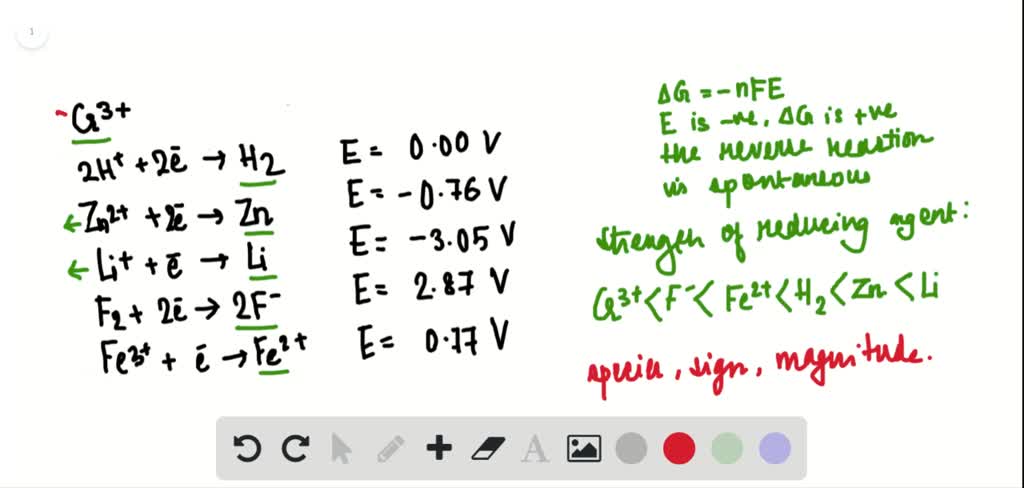 1
Cr³⁺
2H⁺ + 2ē → H₂ E = 0.00 V
Zn²⁺ + 2ē → Zn E = -0.76 V
Li⁺ + ē → Li E = -3.05 V
F₂ + 2ē → 2F⁻ E = 2.87 V
Fe³⁺ + ē → Fe²⁺ E = 0.77 V
ΔG = -nFE
E is -ve, ΔG is +ve
the reverse reaction
is spontaneous
strength of reducing agent:
Cr³⁺ < F⁻ < Fe²⁺ < H₂ < Zn < Li
species, sign, magnitude.
A